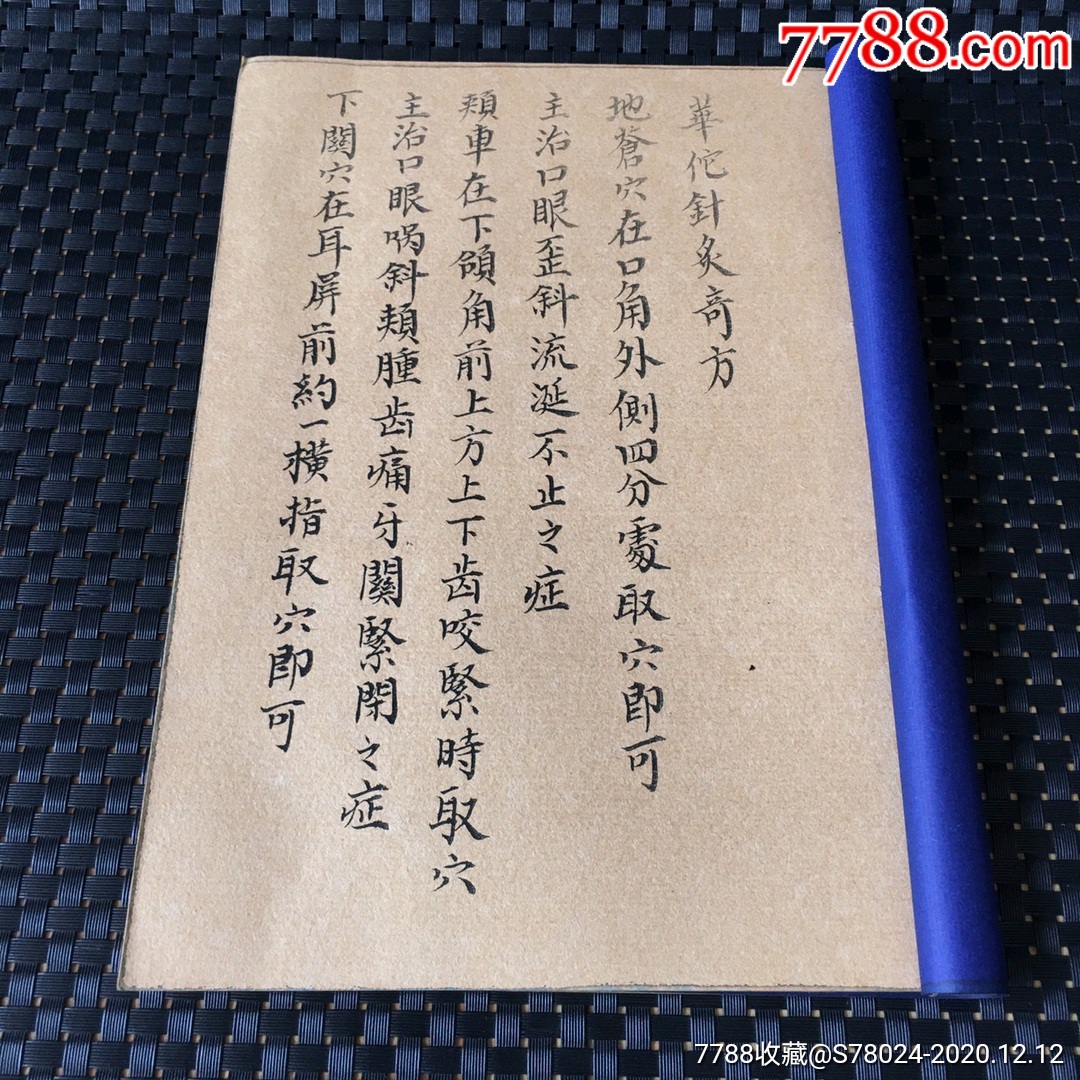 7788.com
華佗針灸奇方
地蒼穴在口角外側四分處取穴即可
主治口眼歪斜流涎不止之症
頬車在下頜角前上方上下齿咬緊時取穴
主治口眼喎斜頬腫齿痛牙關緊閉之症
下關穴在耳屏前約一横指取穴即可
7788收藏@S78024-2020.12.12